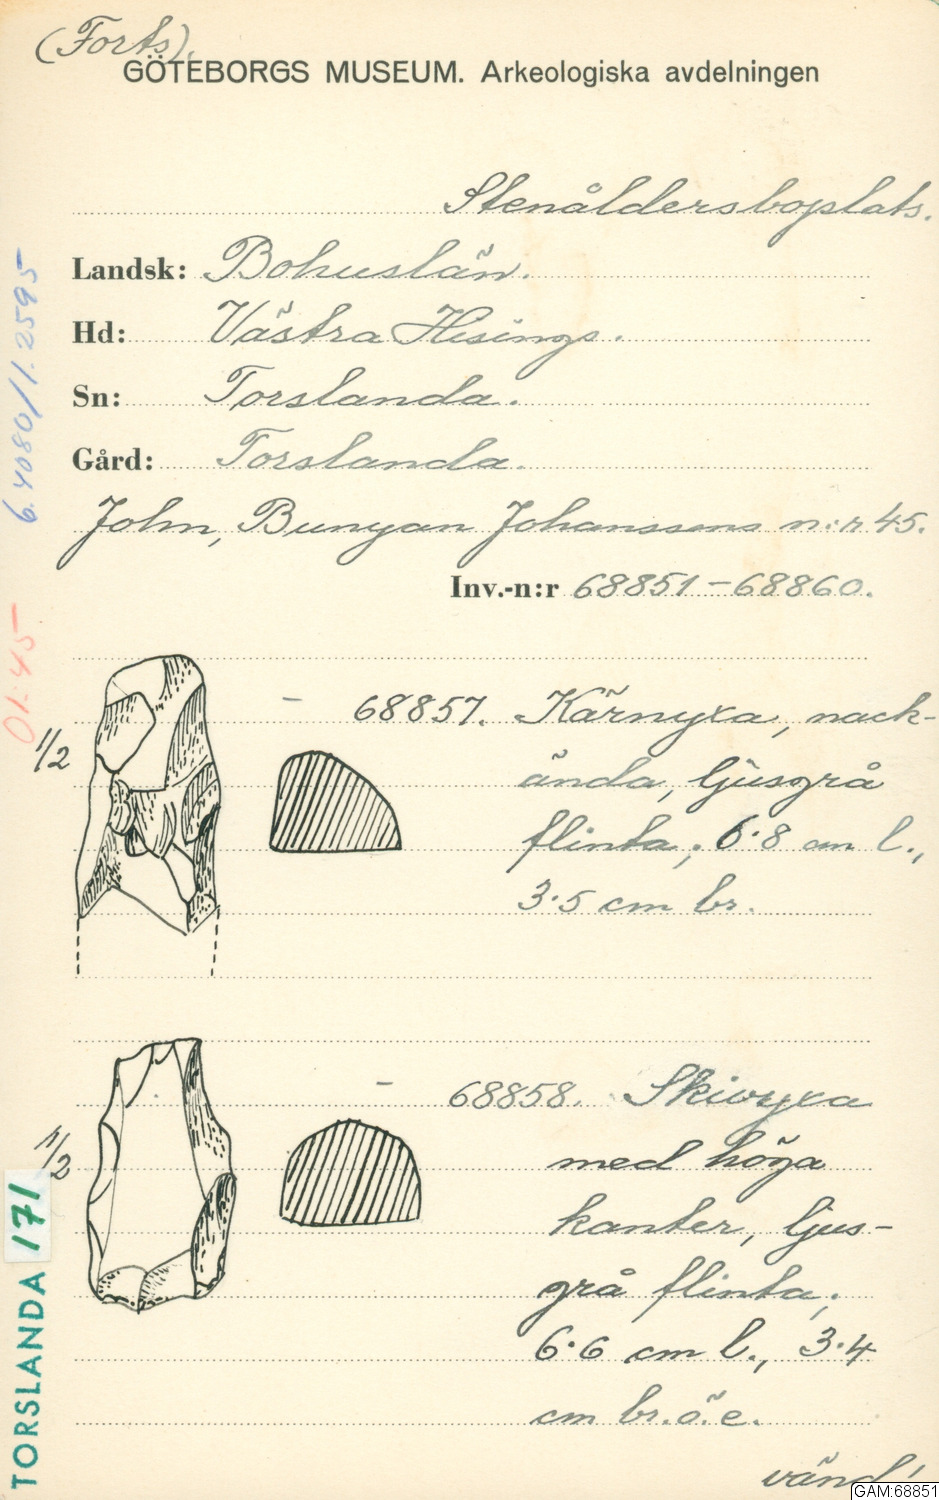 (Forts).
GÖTEBORGS MUSEUM. Arkeologiska avdelningen
Stenåldersboplats.
Landsk: Bohuslän.
Hd: Västra Hisings.
Sn: Torslanda.
Gård: Torslanda.
John, Bunyan Johanssons n:r 45.
Inv.-n:r 68851-68860.
6.4080/1.2595
01:45
1/2
– 68857. Kärnyxa, nack-
ända, ljusgrå
flinta; 6.8 cm l.,
3.5 cm br.
1/2
– 68858. Skivyxa
med höga
kanter, ljus-
grå flinta;
6.6 cm l., 3.4
cm br. ö. e.
vänd!
TORSLANDA 171
GAM:68851